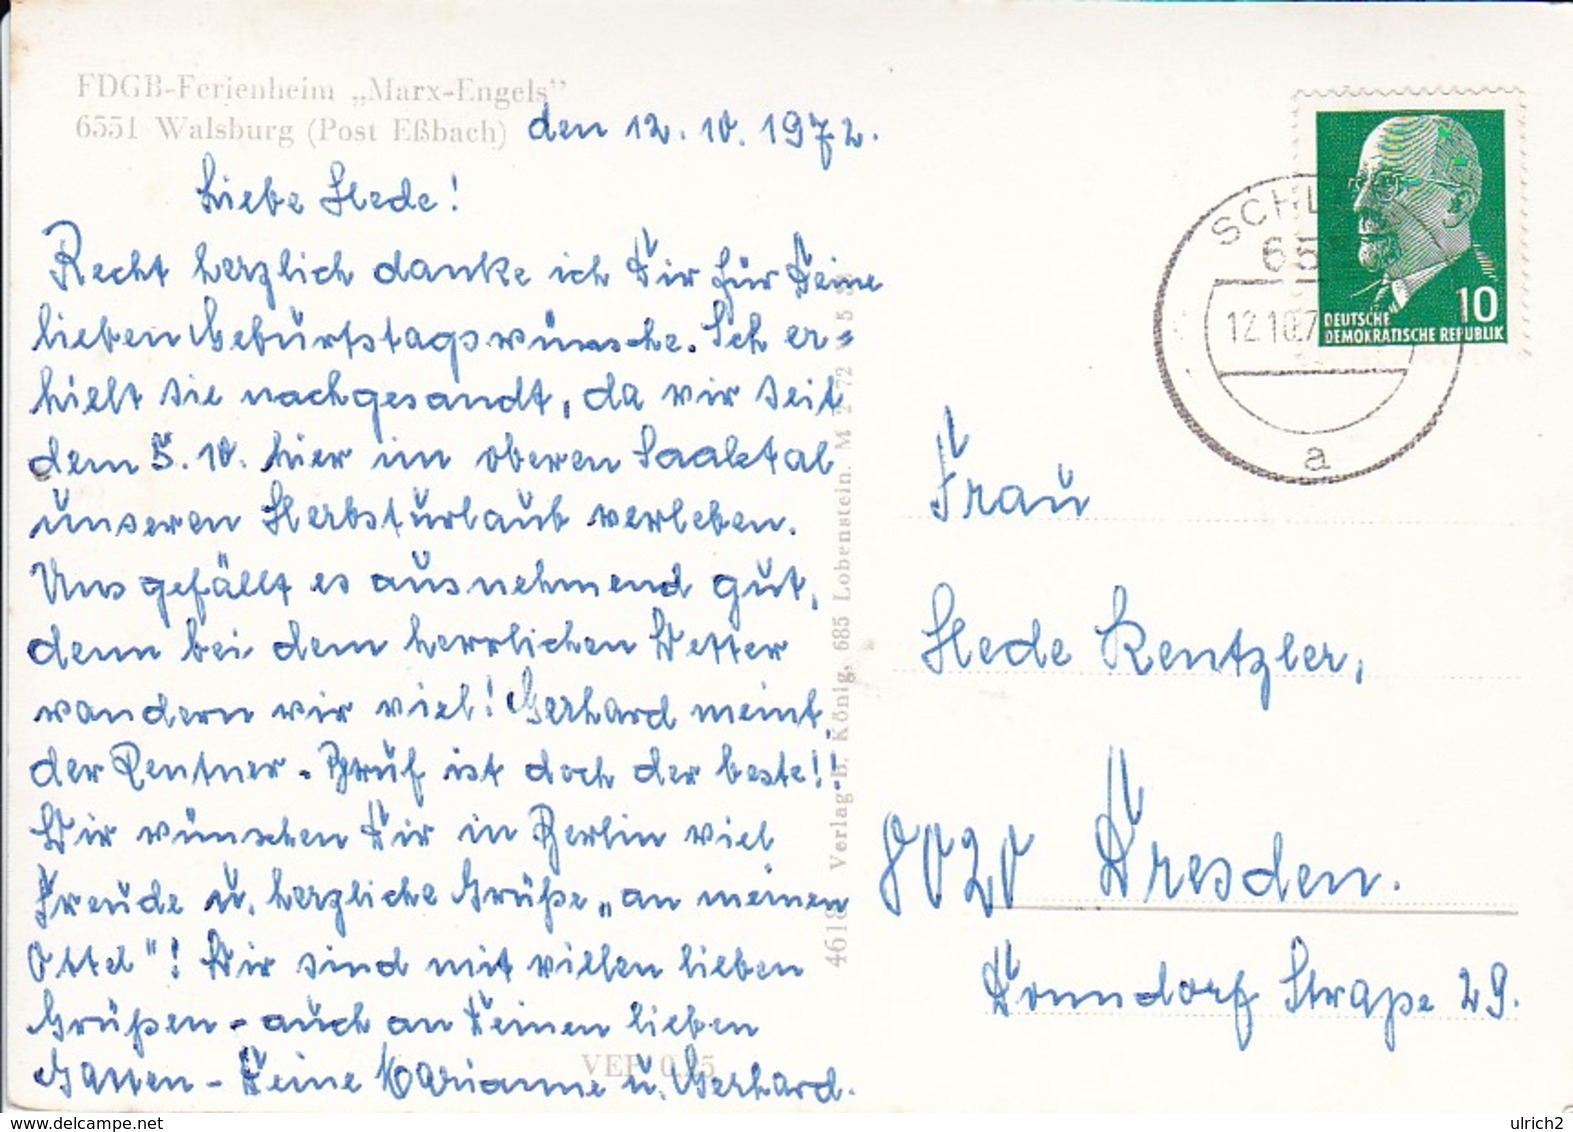 FDGB-Ferienheim „Marx-Engels"
6551 Walsburg (Post Eßbach)
den 12.10.1972.
Liebe Hede!
Recht herzlich danke ich Dir für Deine
lieben Geburtstagswünsche. Ich er-
hielt sie nachgesandt, da wir seit
dem 5.10. hier im oberen Saaletal
unseren Herbsturlaub verleben.
Uns gefällt es ausnehmend gut,
denn bei dem herrlichen Wetter
wandern wir viel! Gerhard meint,
der Rentner-Beruf ist doch der beste!!
Wir wünschen Dir in Berlin viel
Freude u. herzliche Grüße „an meinen
Ottel"! Wir sind mit vielen lieben
Grüßen - auch an Deinen lieben
Gatten - Deine Marianne u. Gerhard.
VEP 0,25
4618 Verlag B. König, 685 Lobenstein. M 2 72 V 5
SCHL
65
12.10.7
a
10
DEUTSCHE
DEMOKRATISCHE REPUBLIK
Frau
Hede Rentzler,
8020 Dresden.
Donndorf Straße 29.
ulrich2